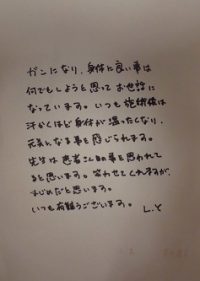 ガンになり、身体に良い事は
何でもしようと思ってお世話に
なっています。いつも施術後は
汗かくほど身体が温たくなり、
元気になる事を感じられます。
先生は患者さん的事を思われて
ると思います。笑わせてくれますが、
まじめだと思います。
いつも有難うございます。 L.Y